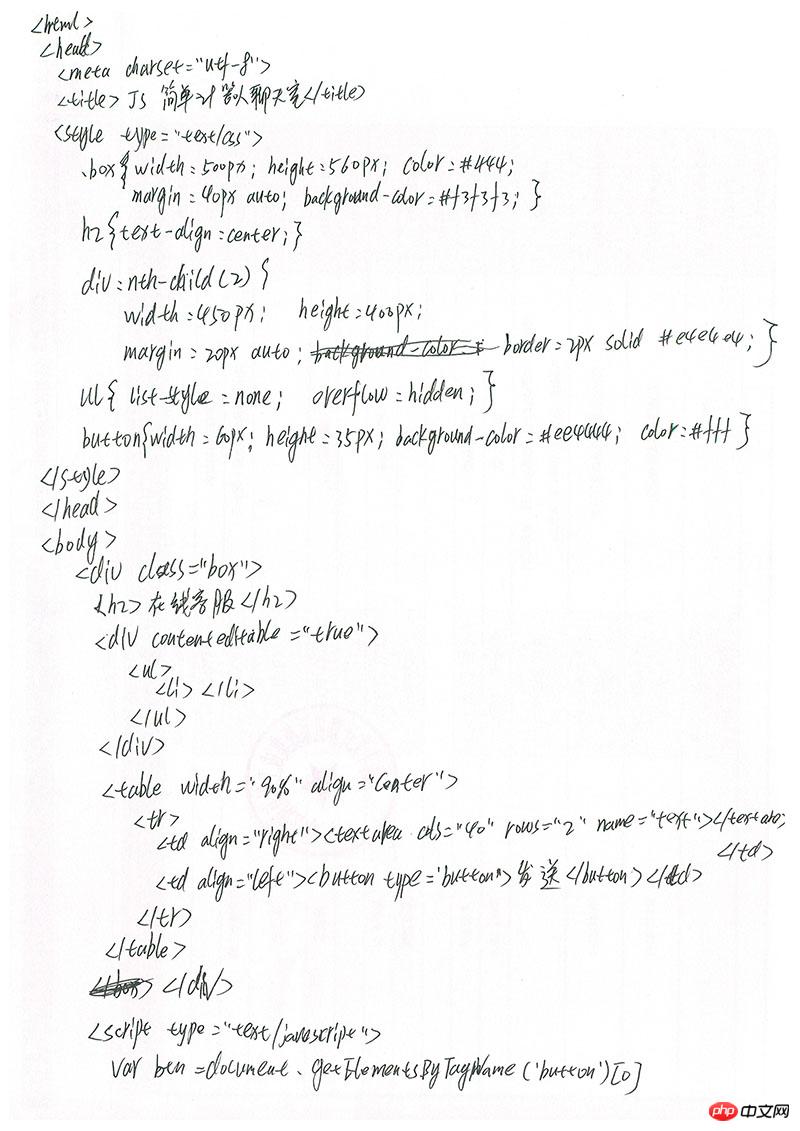 <html>
<head>
<meta charset="utf-8">
<title> JS 简单 机器人聊天室</title>
<style type="text/css">
.box{ width:500px; height:560px; color:#444;
margin:40px auto; background-color:#f3f3f3; }
h2{text-align:center;}
div:nth-child(2) {
width:450px; height:400px;
margin:20px auto; border:2px solid #e4e4e4; }
ul{ list-style:none; overflow:hidden; }
button{width:60px; height:35px; background-color:#ee4444; color:#fff }
</style>
</head>
<body>
<div class="box">
<h2>在线客服</h2>
<div contenteditable="true">
<ul>
<li> </li>
</ul>
</div>
<table width="90%" align="center">
<tr>
<td align="right"><textarea cols="40" rows="2" name="text"></textarea>
</td>
<td align="left"><button type='button'>发送</button></td>
</tr>
</table>
</div>
<script type="text/javascript">
var btn=document.getElementsByTagName('button')[0]
php 中文网